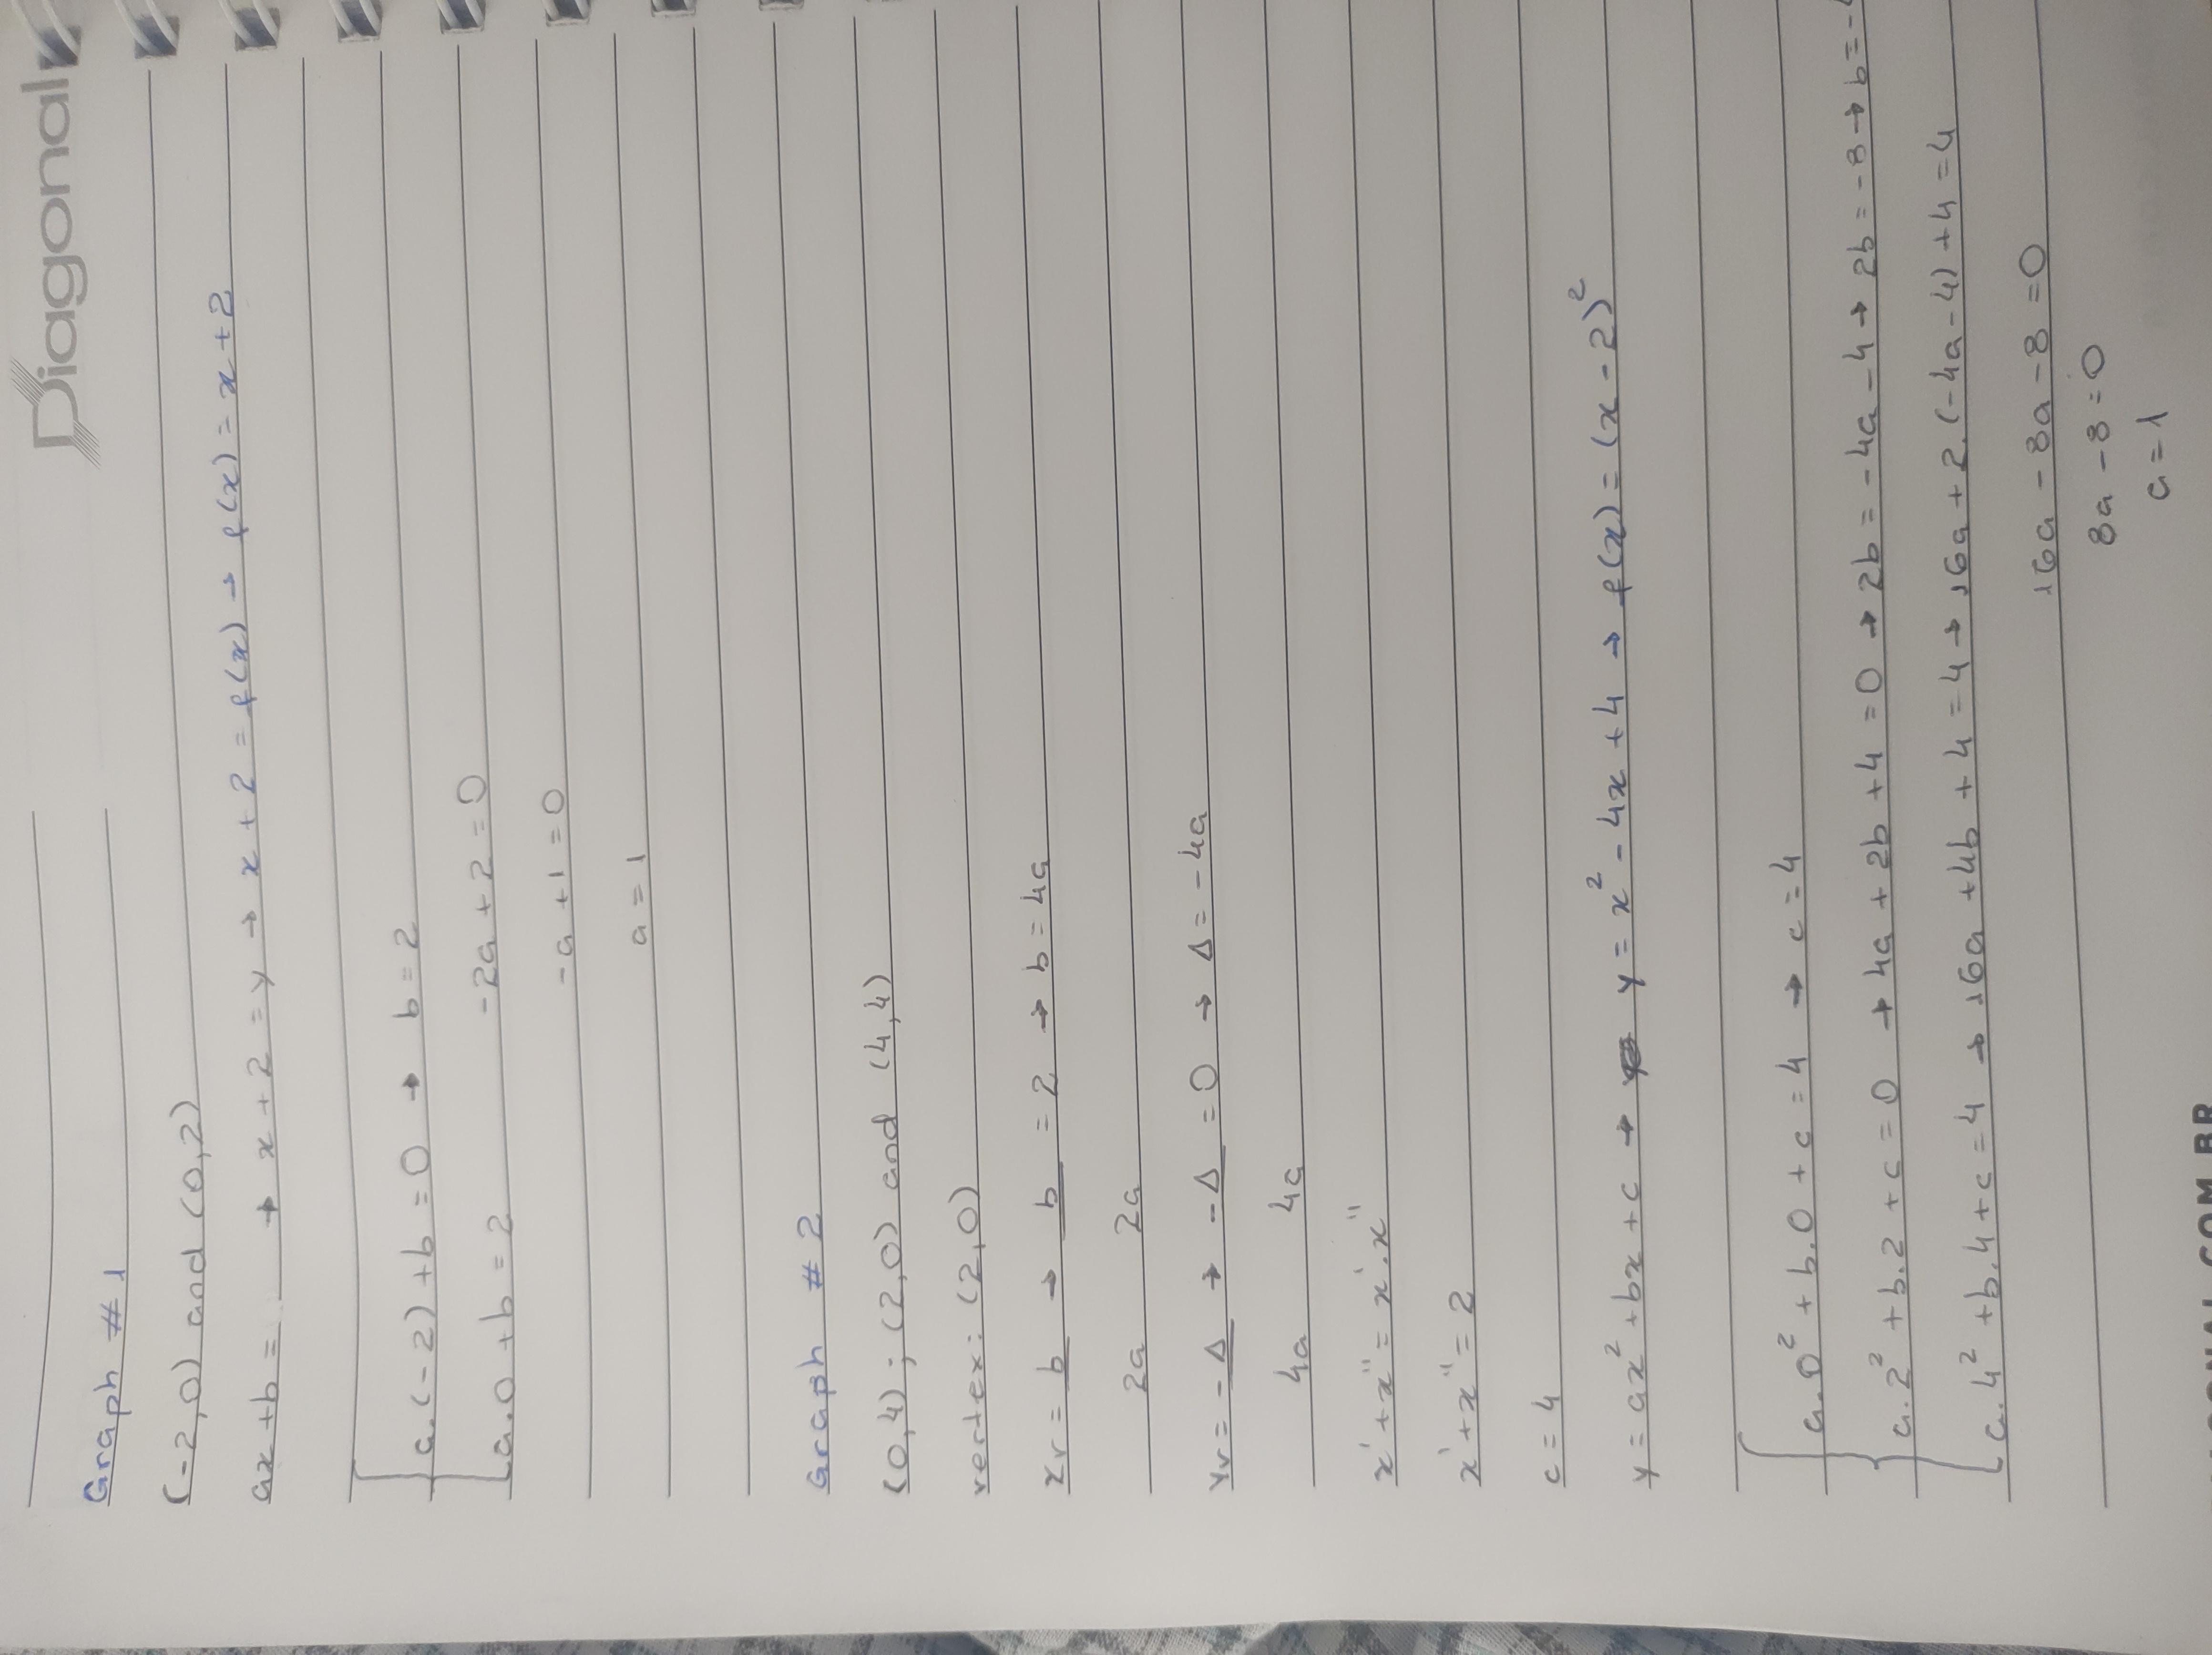 Diagonal
Graph # 1
(-2,0) and (0,2)
ax+b = → x + 2 = y → x + 2 = f(x) → f(x) = x + 2
a.(-2) + b = 0 → b = 2
a.0 + b = 2 -2a + 2 = 0
-a + 1 = 0
a = 1
Graph # 2
(0,4); (2,0) and (4,4)
vertex: (2,0)
xv = b/2a → b/2a = 2 → b = 4a
yv = -Δ/4a → -Δ/4a = 0 → Δ = -4a
x' + x'' = x'.x''
x' + x'' = 2
c = 4
y = ax² + bx + c → y = x² - 4x + 4 → f(x) = (x - 2)²
a.0² + b.0 + c = 4 → c = 4
a.2² + b.2 + c = 0 → 4a + 2b + 4 = 0 → 2b = -4a - 4 → 2b = -8 → b = -
a.4² + b.4 + c = 4 → 16a + 4b + 4 = 4 → 16a + 2.(-4a - 4) + 4 = 4
16a - 8a - 8 = 0
8a - 8 = 0
a = 1